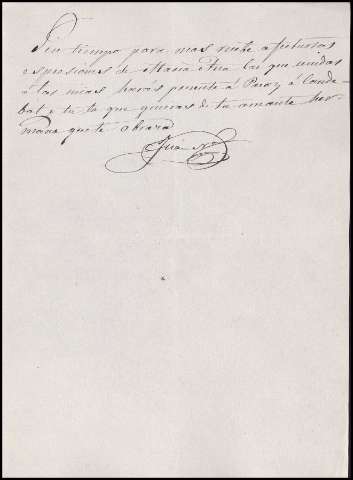 Sin tiempo para mas recibe afectuosas
espresiones de Maria Ana las que unidas
á las mias haras presente á Paca y á Conde-
bat e tu la que quieras de tu amante her-
mana que te abraza